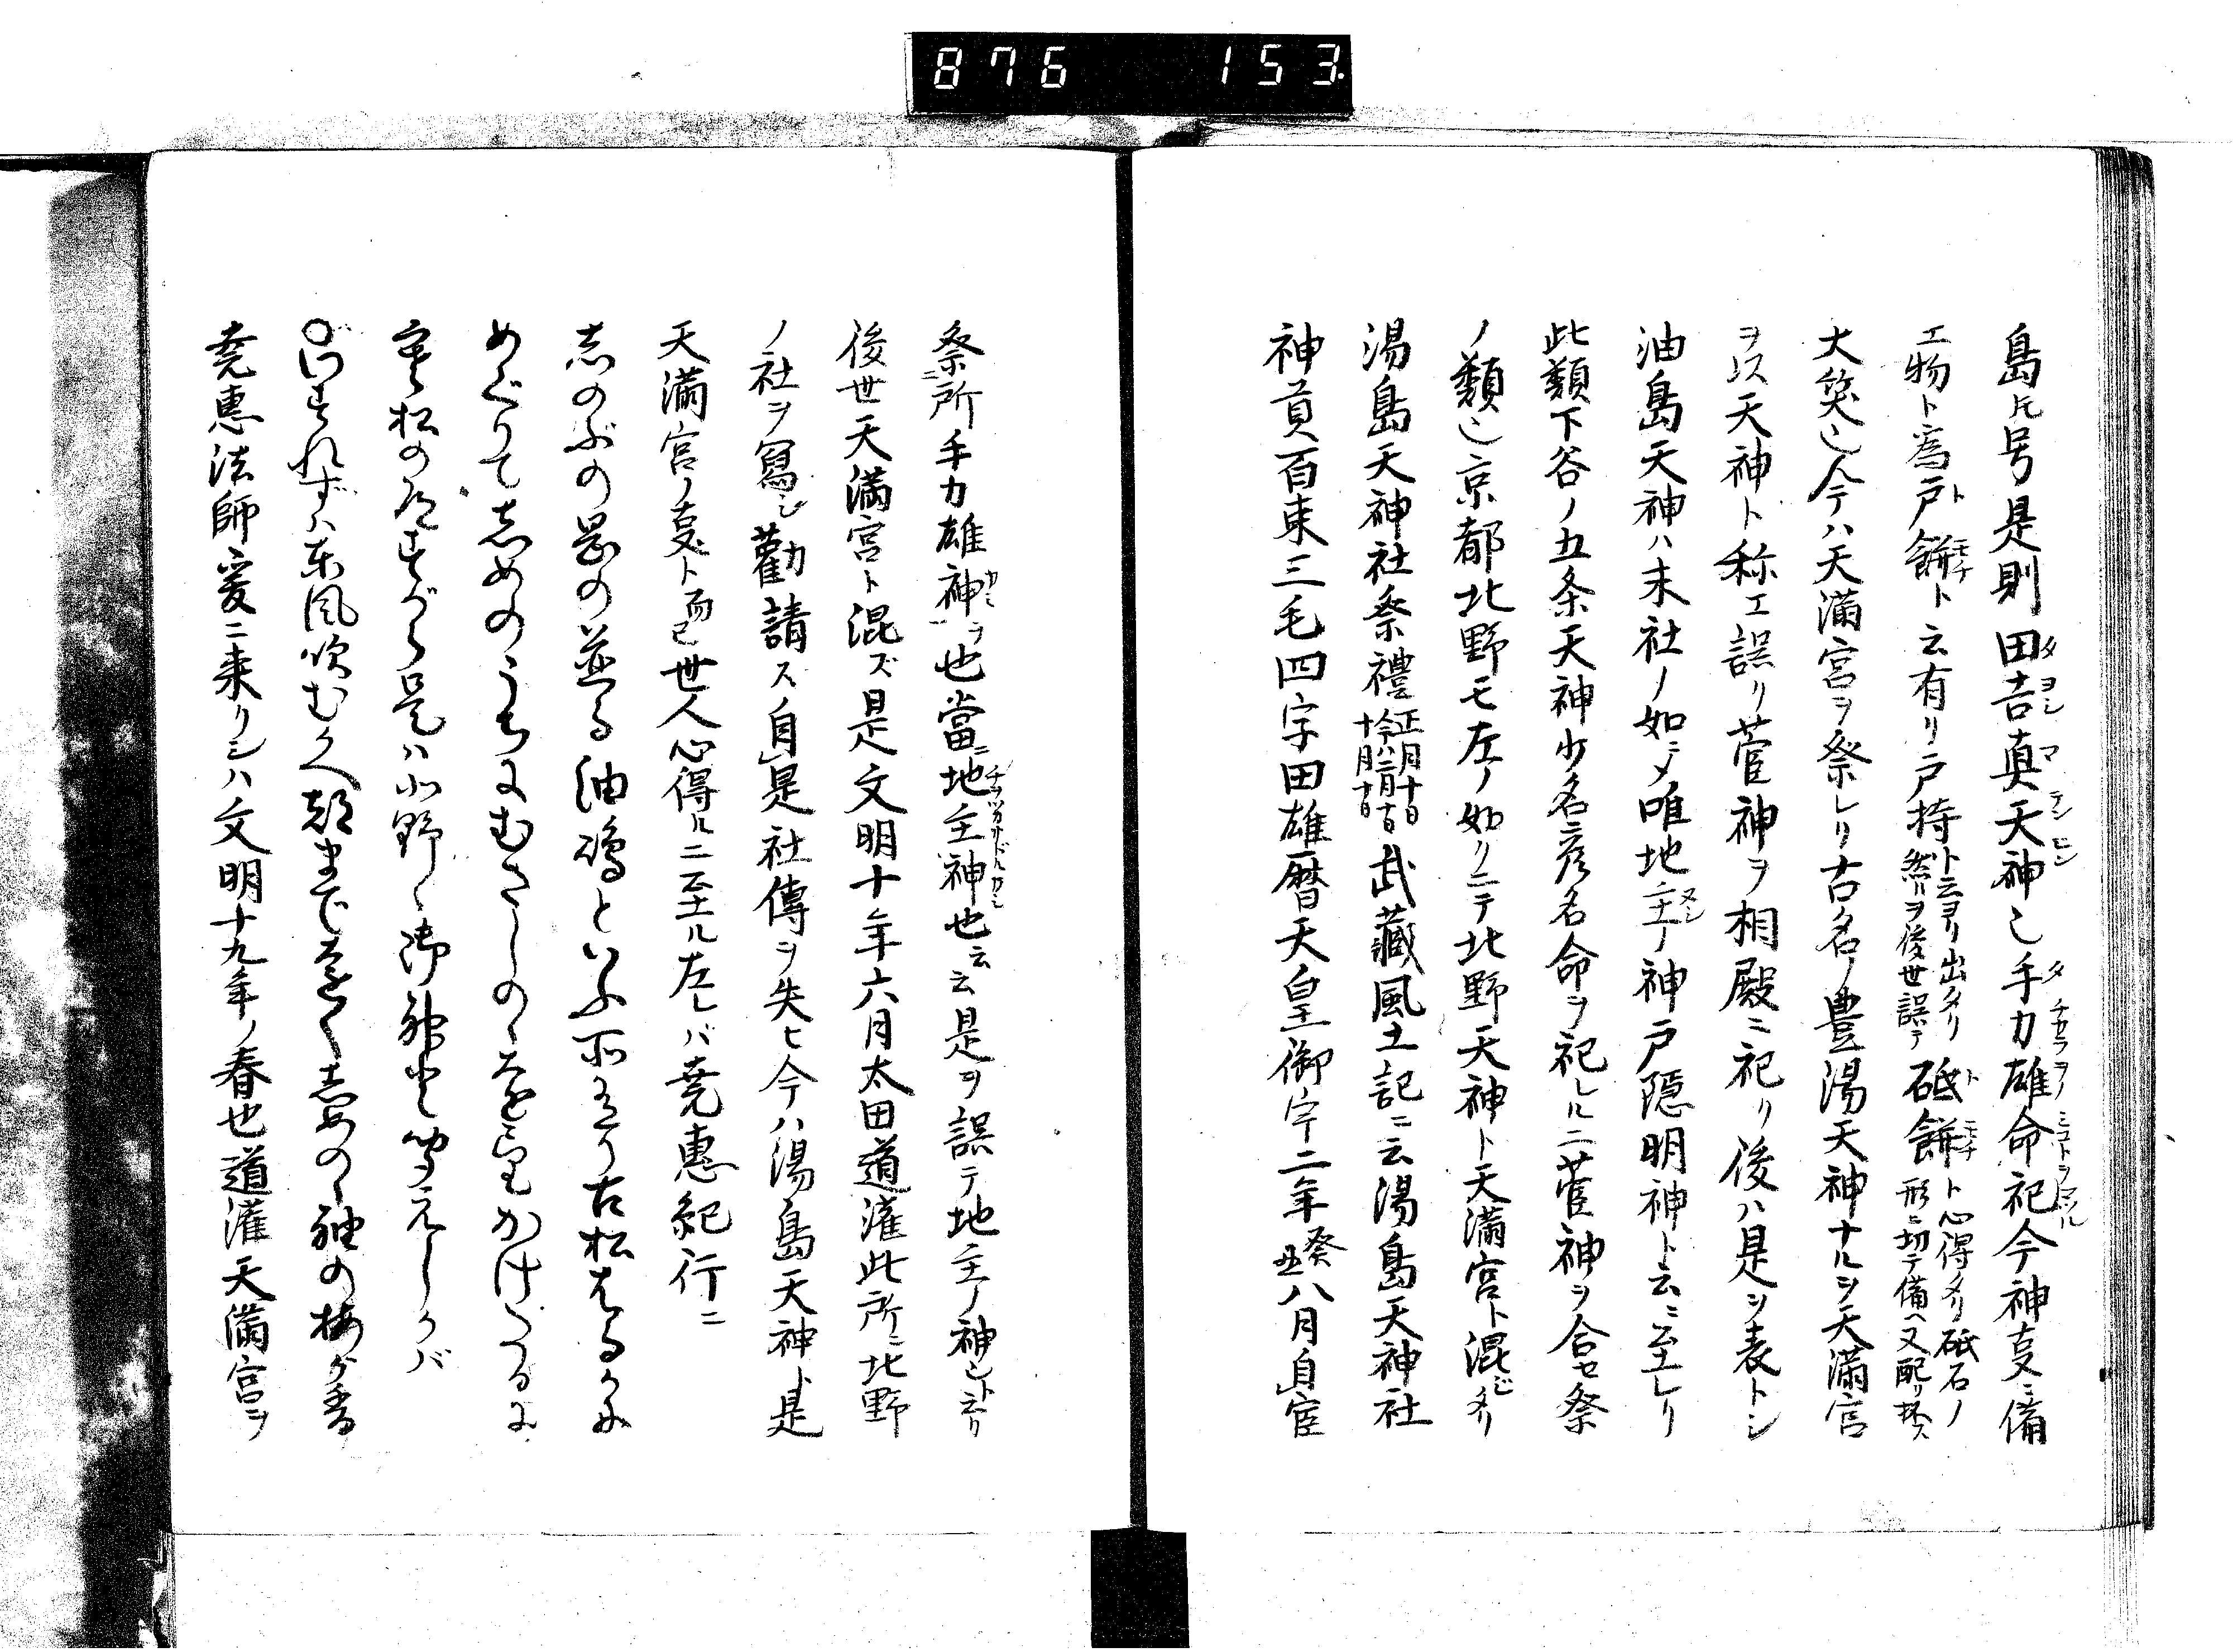 876 153
島氏号是則田吉真天神也手力雄命祀今神変ニ備
エ物ト為戸餅ト云有リ戸持ト云ヨリ出タリ然ルヲ後世誤テ砥餅ト心得タリ砥石ノ形ニ切テ備ヘ又配リ抔ス
大笑也今ハ天満宮ヲ祭レリ古名ノ豊湯天神ナルヲ天満宮
ヲ以天神ト称エ誤リ菅神ヲ相殿ニ祀リ後ハ是ヲ表トシ
油島天神ハ末社ノ如ニメ唯地主ノ神戸隠明神ト云ニ至レリ
此類下谷ノ五条天神少名彦名命ヲ祀レルニ菅神ヲ合セ祭
ノ類也京都北野モ左ノ如リニテ北野天神ト天満宮ト混ジタリ
湯島天神社祭禮正月十日十月十日武藏風土記ニ云湯島天神社
神貢百束三毛四字田雄暦天皇御宇二年癸丑八月自宦
祭所手力雄神ヲ也當ニ地主神也云云是ヲ誤テ地主ノ神也ト云リ
後世天満宮ト混ズ是文明十年六月太田道灌此所ニ北野
ノ社ヲ寫シ勸請ス自是社傳ヲ失ヒ今ハ湯島天神ト是
天満宮ノ変ト而已世人心得ルニ至ル左レバ尭惠紀行ニ
志のぶの岡の並る油嶋といふ所有り古松はるかに
めぐりて志めのうちにむさしのゝ遠望かけたるに
寒松の道すがら是ハ北野ゝ御神と聞えしかバ
○わすれずハ東風吹むくへ都まで遠く志めのゝ袖の梅が香
尭惠法師爰ニ来リシハ文明十九年ノ春也道灌天満宮ヲ